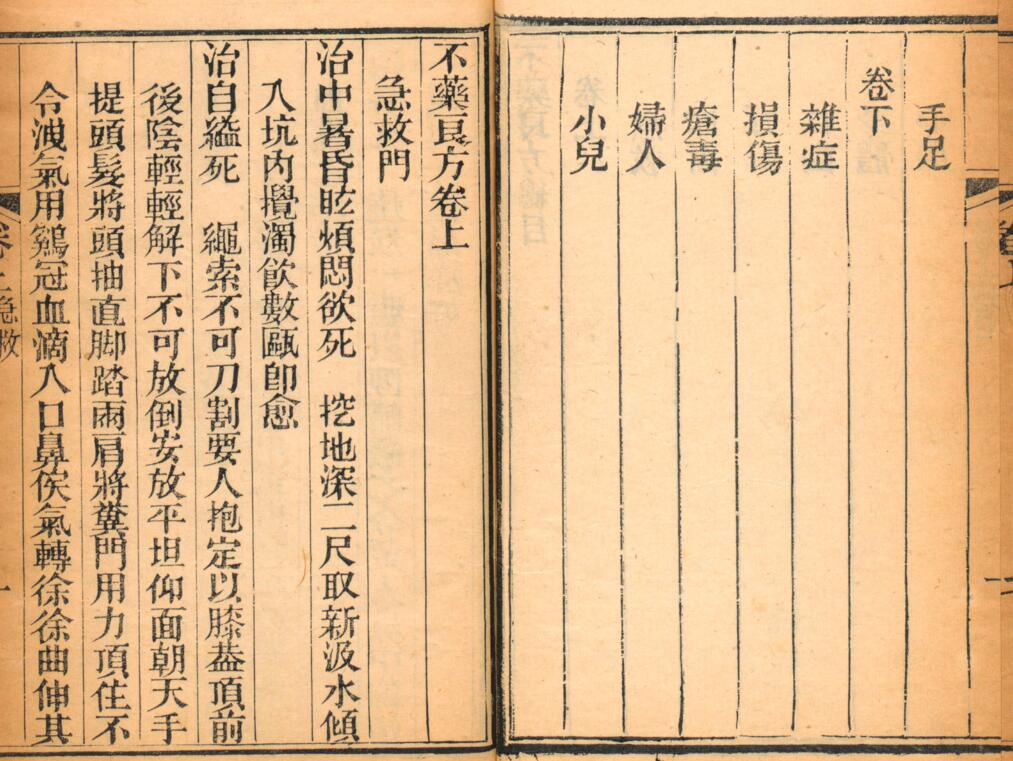 手足
卷下
雜症
損傷
瘡毒
婦人
小兒
不藥良方卷上
急救門
治中暑昏眩煩悶欲死　挖地深二尺取新汲水傾
入坑內攪濁飲數甌卽愈
治自縊死　繩索不可刀割要人抱定以膝蓋頂前
後陰輕輕解下不可放倒安放平坦仰面朝天手
提頭髮將頭抽直脚踏兩肩將糞門用力頂住不
令洩氣用鷄冠血滴入口鼻俟氣轉徐徐曲伸其
卷上急救
一